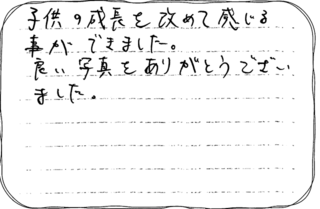 子供の成長を改めて感じる
事ができました。
良い写真をありがとうござい
ました。